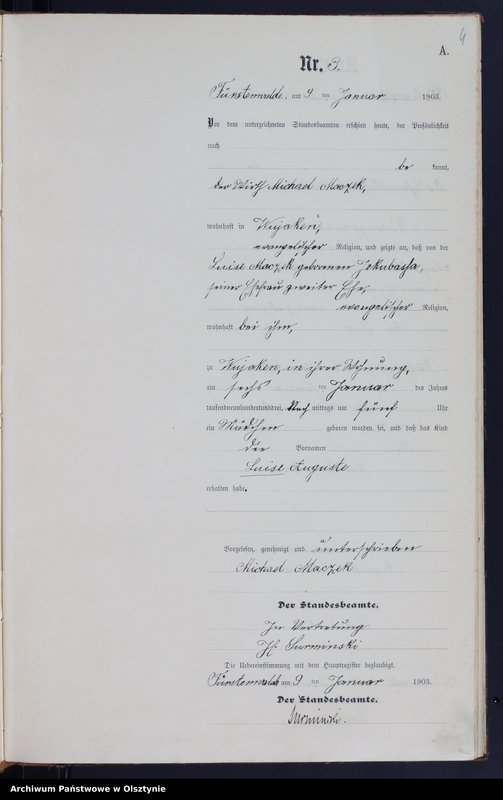 4
A.
Nr. 3.
Fürstenwalde, am 9 ten Januar 1903.
Vor dem unterzeichneten Standesbeamten erschien heute, der Persönlichkeit
nach
be kannt,
der Wirth Michael Maczek,
wohnhaft in Wujaken,
evangelischer Religion, und zeigte an, daß von der
Luise Maczek geborenen Jekubassa,
seiner Ehefrau zweiter Ehe,
evangelischer Religion,
wohnhaft bei ihm,
zu Wujaken, in ihrer Wohnung,
am sechs ten Januar des Jahres
tausendneunhundertunddrei, Nach mittags um fünf Uhr
ein Mädchen geboren worden sei, und daß das Kind
die Vornamen
Luise Auguste
erhalten habe.
Vorgelesen, genehmigt und unterschrieben
Michael Maczek
Der Standesbeamte.
In Vertretung
H. Surminski
Die Uebereinstimmung mit dem Hauptregister beglaubigt.
Fürstenwalde am 9 ten Januar 1903.
Der Standesbeamte.
Surminski.
Archiwum Państwowe w Olsztynie